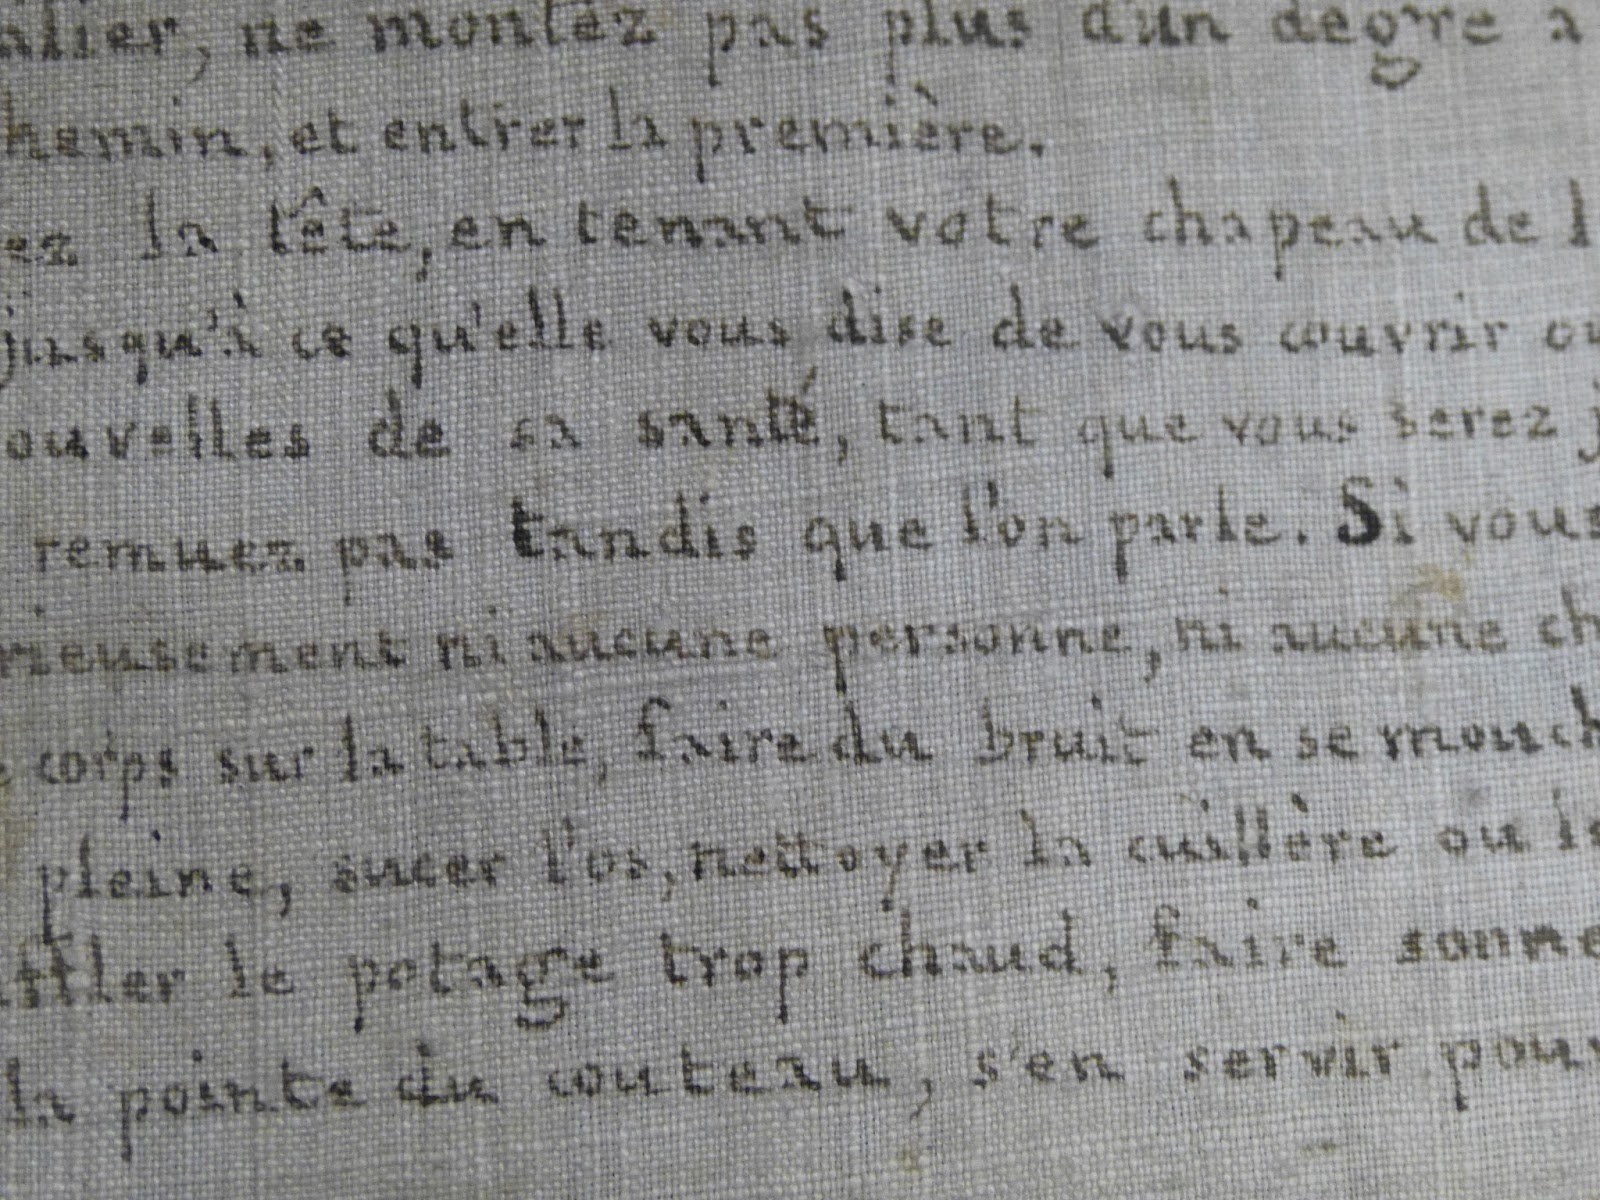 alier, ne montez pas plus d'un degre a
hemin, et entrer la première.
ez la tête, en tenant votre chapeau de l
jusqu'à ce qu'elle vous dise de vous couvrir ou
ouvelles de sa santé, tant que vous serez j
remuez pas tandis que l'on parle. Si vous
rieusement ni aucune personne, ni aucune ch
e corps sur la table, faire du bruit en se mouch
pleine, sucer l'os, nettoyer la cuillère ou la
iffler le potage trop chaud, faire sonne
la pointe du couteau, s'en servir pour